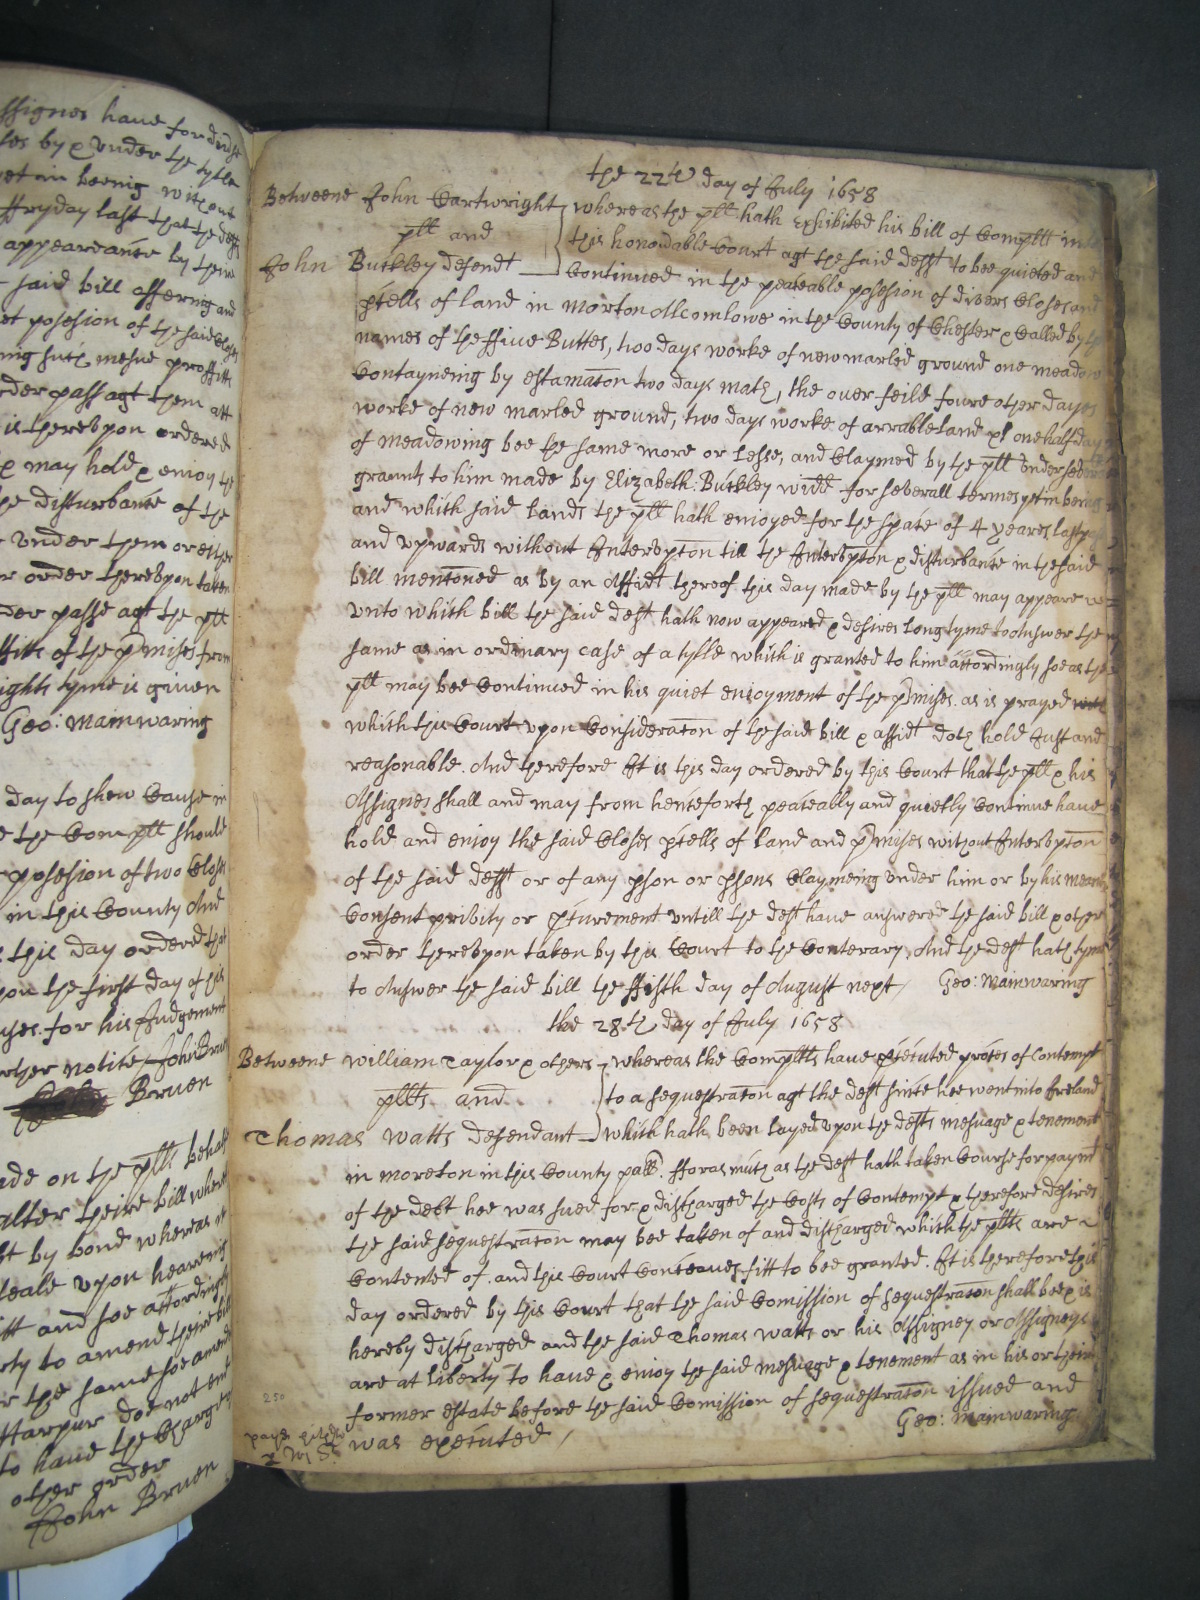 ssignes have for disch
ses by & under the tytle
yet in beeing without
ffryday last that the defts
appeareance by them
said bill offering and
et posession of the said Closes
ing such mesne proffitts
rder pass agt them att
is thereupon ordered
& may hold & enioy the
he disturbance of the
under them or either
r order thereupon taken
der passe agt the pll
ffitts of the p'mises from
ights tyme is given
Geo: Mainwaring
day to shew Cause in
e the Compll should
posession of two Closes
in this County And
this day ordered that
pon the first day of this
uses for his Judgement
urther notice John Bru
Bruen
ade on the plls behalf
alter theire bill where
bt by bond whereas it
seale upon heareing
itt and soe accordingly
rty to amend their bill
r the same soe amend
Harpur doe not ent
to have the Charge of
other order
John Bruen
the 22th day of July 1658
Betweene John Cartwright whereas the pll hath exhibited his bill of Compllt into
pll and this honorable Court agt the said defft to bee quieted and
John Buckley defendt Continued in the peaceable posesion of divers Closes and
p'cells of land in Morton Alcomlowe in the County of Chester & Called by the
names of the ffive Buttes, two days worke of new marled ground one meadow
Contayneing by estamacon two days math, the over feild foure other dayes
worke of new marled ground, two days worke of arrable land & one halfe day
of meadowing bee the same more or lesse, and Claymed by the pll under severall
graunts to him made by Elizabeth Buckley widd for severall termes yet in being
and which said lands the pll hath enioyed for the space of 4 yeares last past
and upwards without Interupcon till the Interupcon & disturbance in the said
bill menconed as by an Affidt thereof this day made by the pll may appeare
unto which bill the said deft hath now appeared & desires long tyme to Answer the
same as in ordinary case of a tylle which is granted to him accordingly soe as the
pll may bee Continued in his quiet enioyment of the p'mises as is prayed
which this Court upon Consideracon of the said bill & affidt doth hold Just and
reasonable. And therefore It is this day ordered by this Court that the pll & his
Assignes shall and may from henceforth peaceably and quietly Continue have
hold and enioy the said Closes p'cells of land and p'mises without Interupcon
of the said defft or of any pson or psons Claymeing under him or by his meanes
Consent privity or p'curement untill the deft have answered the said bill & other
order thereupon taken by this Court to the Conterary, And the deft hath tyme
to Answer the said bill the ffifth day of August next Geo: Mainwaring
the 28th day of July 1658
Betweene William Taylor & others whereas the Compllts have p'secuted proces of Contempt
pllts and to a sequestracon agt the deft since hee went into Ireland
Thomas Watts defendant which hath been layed upon the defts mesuage & tenement
in Moreton in this County pall. fforasmuch as the deft hath taken Course for paymt
of the debt hee was sued for & discharged the Costs of Contempt & therefore desires
the said sequestracon may bee taken of and discharged which the pllts are
Contented of. and this Court Conceaves fitt to bee granted. It is therefore this
day ordered by this Court that the said Comission of sequestracon shall bee & is
hereby discharged and the said Thomas Watts or his Assigney or Assigneys
are at liberty to have & enioy the said mesuage & tenement as in his or their
former estate before the said Comission of sequestracon issued and
was executed Geo: Mainwaring
250